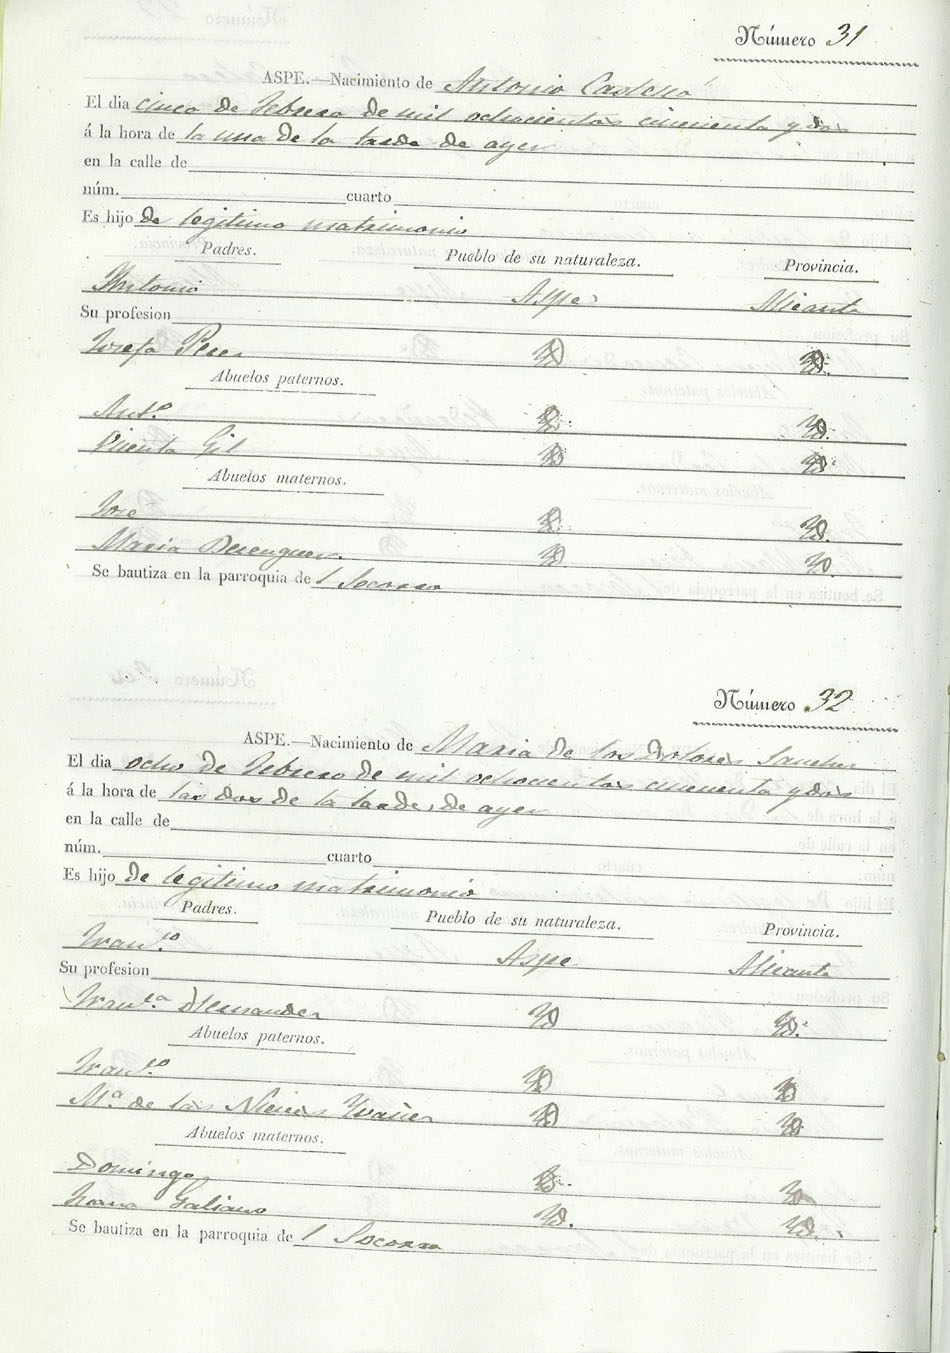 Número 31
ASPE.—Nacimiento de Antonio
El dia cinco de Febrero de mil ochocientos cincuenta y dos
á la hora de la una de la tarde de ayer
en la calle de
núm. cuarto
Es hijo de legitimo matrimonio
Padres. Pueblo de su naturaleza. Provincia.
Antonio Aspe Alicante
Su profesion
Josefa Perez Yd Yd.
Abuelos paternos.
Ant.º Yd. Yd.
Vicenta Gil Yd Yd.
Abuelos maternos.
José Yd. Yd.
Maria Berenguer Yd Yd.
Se bautiza en la parroquia de l Socorro
Número 32
ASPE.—Nacimiento de Maria de los Dolores Sanchez
El dia ocho de Febrero de mil ochocientos cincuenta y dos
á la hora de las dos de la tarde de ayer
en la calle de
núm. cuarto
Es hijo de legitimo matrimonio
Padres. Pueblo de su naturaleza. Provincia.
Fran.co Aspe Alicante
Su profesion
Fran.ca Hernandez Yd Yd.
Abuelos paternos.
Fran.co Yd Yd
M.a de las Nieves Yd Yd.
Abuelos maternos.
Domingo Yd. Yd
Galiano Yd. Yd.
Se bautiza en la parroquia de l Socorro